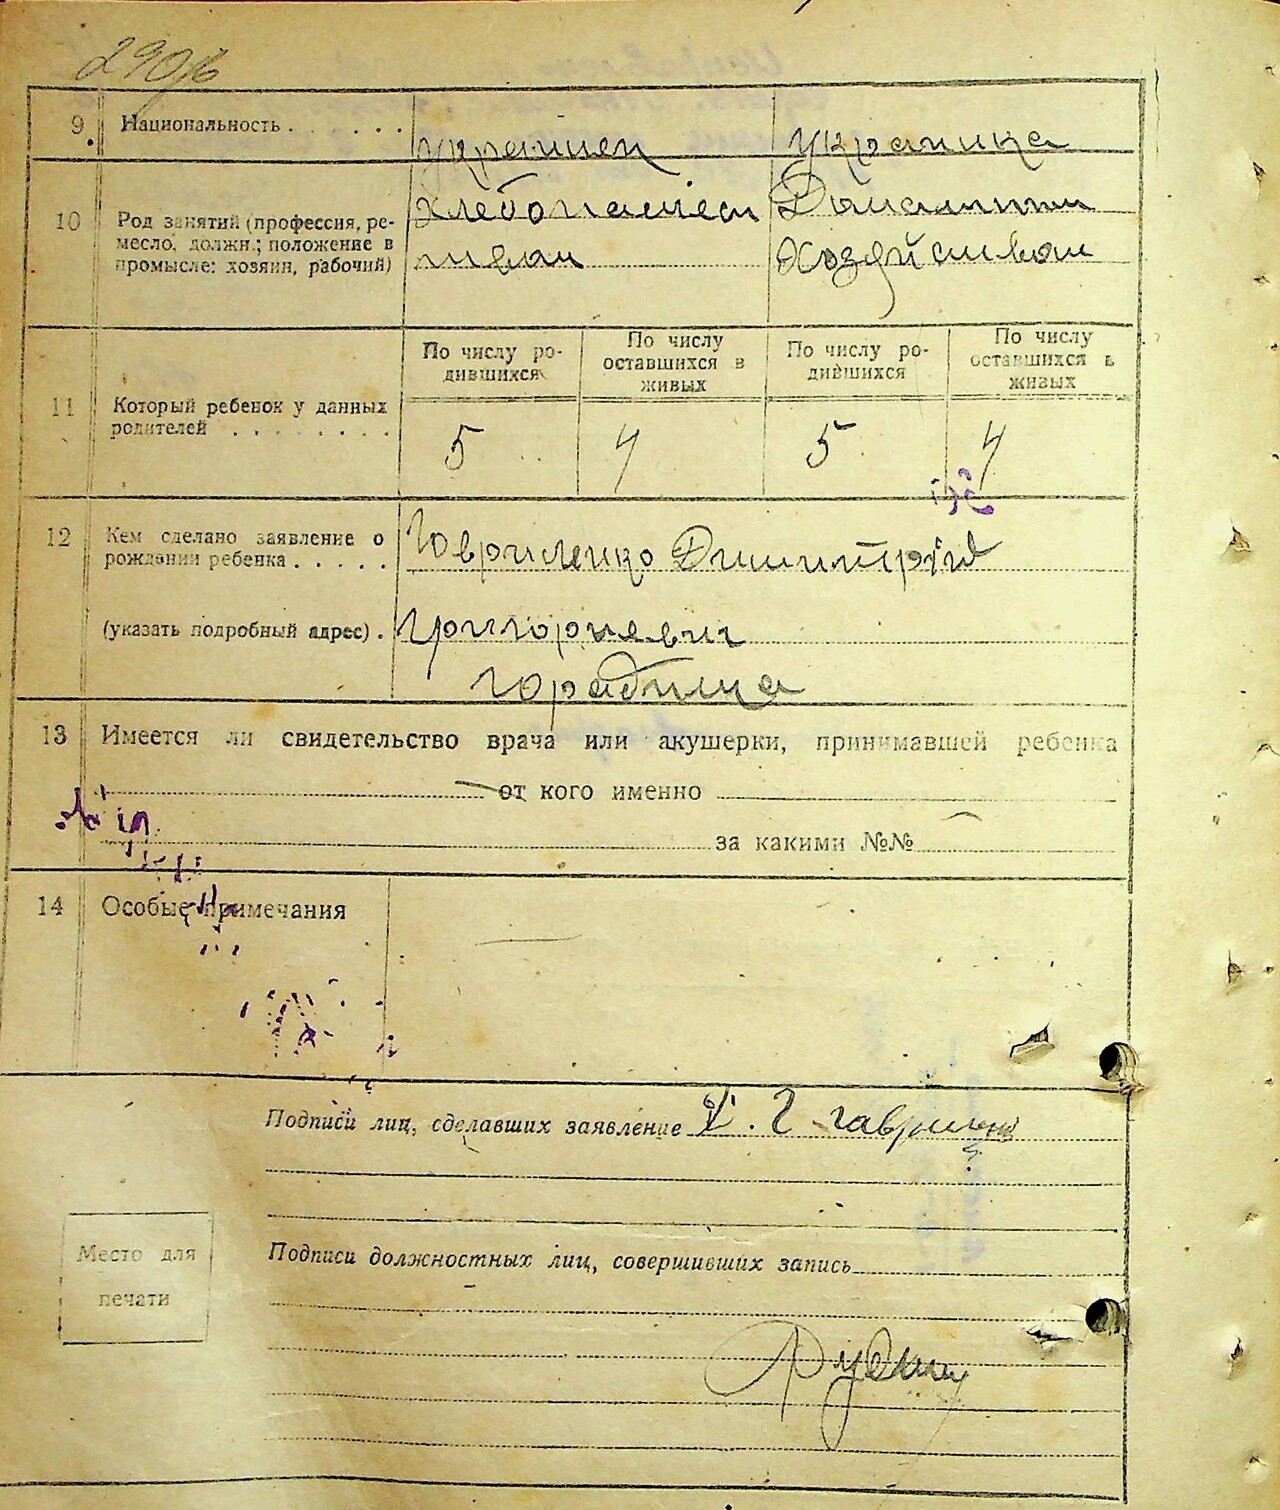 290
9 Национальность . . . . . . украинец украинка
10 Род занятий (профессия, ре-
месло, должн.; положение в
промысле: хозяин, рабочий)
хлебопашест
Домашним
хозяйством
По числу ро-
дившихся
По числу
оставшихся в
живых
По числу ро-
дившихся
По числу
оставшихся в
живых
11 Который ребенок у данных
родителей . . . . . . . .
5 4 5 4
12 Кем сделано заявление о
рождении ребенка . . . . .
Говриленко Димитрий
(указать подробный адрес) . Григориевич
13 Имеется ли свидетельство врача или акушерки, принимавшей ребенка
от кого именно
за какими №№
14 Особые примечания
Подписи лиц, сделавших заявление Д. Г
Место для
печати
Подписи должностных лиц, совершивших запись